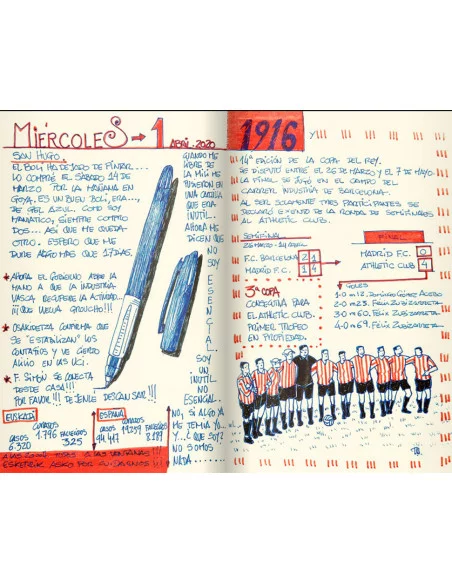 MIÉRCOLES → 1
ABRIL - 2020
SAN HUGO.
EL BOLI HA DEJADO DE PINTAR...
LO COMPRÉ EL SÁBADO 14 DE
MARZO POR LA MAÑANA EN
GOYA. ES UN BUEN BOLI, ERA...,
DE GEL AZUL. COMO SOY
MANIÁTICO, SIEMPRE COMPRO
DOS... ASÍ QUE ME QUEDA
OTRO. ESPERO QUE ME
DURE ALGO MÁS QUE 17 DÍAS.
★ AHORA EL GOBIERNO ABRE LA
MANO A QUE LA INDUSTRIA
VASCA RECUPERE LA ACTIVIDAD...
¡¡¡QUE VUELVA GROUCHO!!!
★ OSAKIDETZA CONFIRMA QUE
SE "ESTABILIZAN" LOS
CONTAGIOS Y VE CIERTO
ALIVIO EN LAS UCI.
★ F. SIMÓN SE CONECTA
DESDE CASA!!!
POR FAVOR!!! DEJENLE DESCANSAR!!!
CUANDO ME
LIBRÉ DE
LA MILI ME
PUSIERON EN
UNA CARTILLA
QUE ERA
INÚTIL.
AHORA ME
DICEN QUE
NO
SOY
ESENCIAL.
SOY
UN
INUTIL
NO
ESENCIAL.
NO, SI ALGO YA
ME TEMÍA YO...
Y... ¿QUE SOY?
NO SOMOS
NADA........
EUSKADI
CASOS
6.320
CURADOS
1.796
FALLECIDOS
325
ESPAÑA
CASOS
94.417
CURADOS
19.259
FALLECIDOS
8.189
ESKERRIK ASKO POR CUIDARNOS!!!
1916
14ª EDICIÓN DE LA COPA DEL REY.
SE DISPUTÓ ENTRE EL 26 DE MARZO Y EL 7 DE MAYO.
LA FINAL SE JUGÓ EN EL CAMPO DEL
CARRER INDUSTRIA DE BARCELONA.
AL SER SOLAMENTE TRES PARTICIPANTES SE
DECLARÓ EXENTO DE LA RONDA DE SEMIFINALES
AL ATHLETIC CLUB.
SEMIFINAL
26 MARZO - 2 ABRIL
F.C. BARCELONA 2 1
MADRID F.C. 1 4
FINAL
MADRID F.C. 0
ATHLETIC CLUB. 4
3ª COPA
CONSECUTIVA PARA
EL ATHLETIC CLUB.
PRIMER TROFEO
EN PROPIEDAD.
GOLES
1-0 m 12. DOMINGO GÓMEZ ACEDO
2-0 m 23. FÉLIX ZUBIZARRETA
3-0 m 60. FÉLIX ZUBIZARRETA
4-0 m 69. FÉLIX ZUBIZARRETA